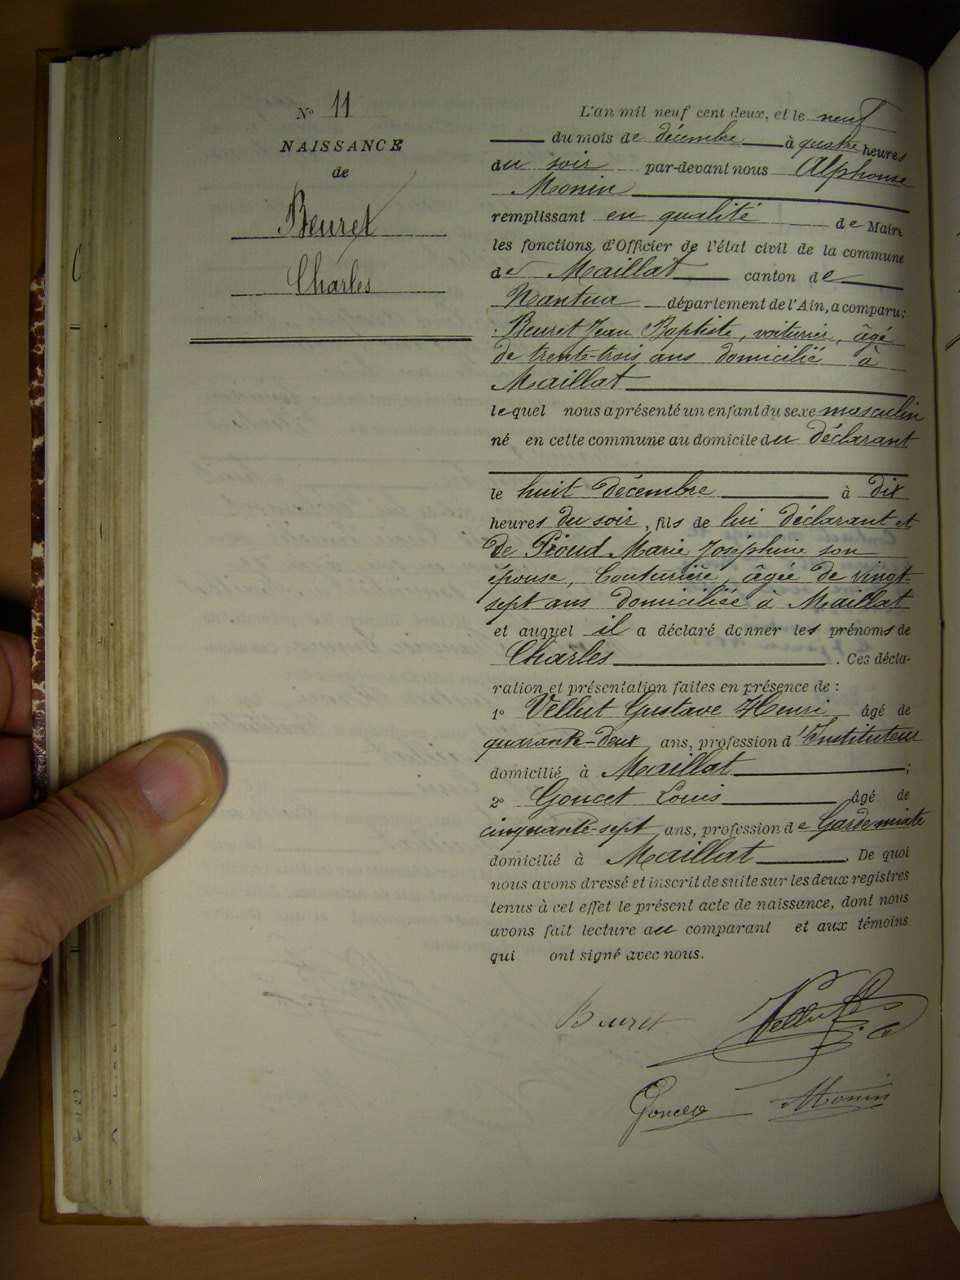 N° 11
NAISSANCE
de
Beuret
Charles
L'an mil neuf cent deux, et le neuf
du mois de décembre à quatre heures
du soir par-devant nous Alphonse
Monin
remplissant en qualité de Maire
les fonctions d'Officier de l'état civil de la commune
de Maillat canton de
Nantua département de l'Ain, a comparu:
Beuret Jean Baptiste, voiturier, âgé
de trente-trois ans domicilié à
Maillat
lequel nous a présenté un enfant du sexe masculin
né en cette commune au domicile du déclarant
le huit décembre à dix
heures du soir, fils de lui déclarant et
de Marie Josephine son
épouse, Couturière, âgée de vingt-
sept ans domiciliée à Maillat
et auquel il a déclaré donner les prénoms de
Charles. Ces décla-
ration et présentation faites en présence de:
1° Vellut Gustave Henri âgé de
quarante-deux ans, profession d'Instituteur
domicilié à Maillat;
2° Goncet Louis âgé de
cinquante-sept ans, profession de
domicilié à Maillat. De quoi
nous avons dressé et inscrit de suite sur les deux registres
tenus à cet effet le présent acte de naissance, dont nous
avons fait lecture au comparant et aux témoins
qui ont signé avec nous.
Beuret Vellut
Goncet Monin